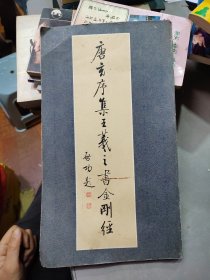 唐玄序集王羲之书金刚经
启功題